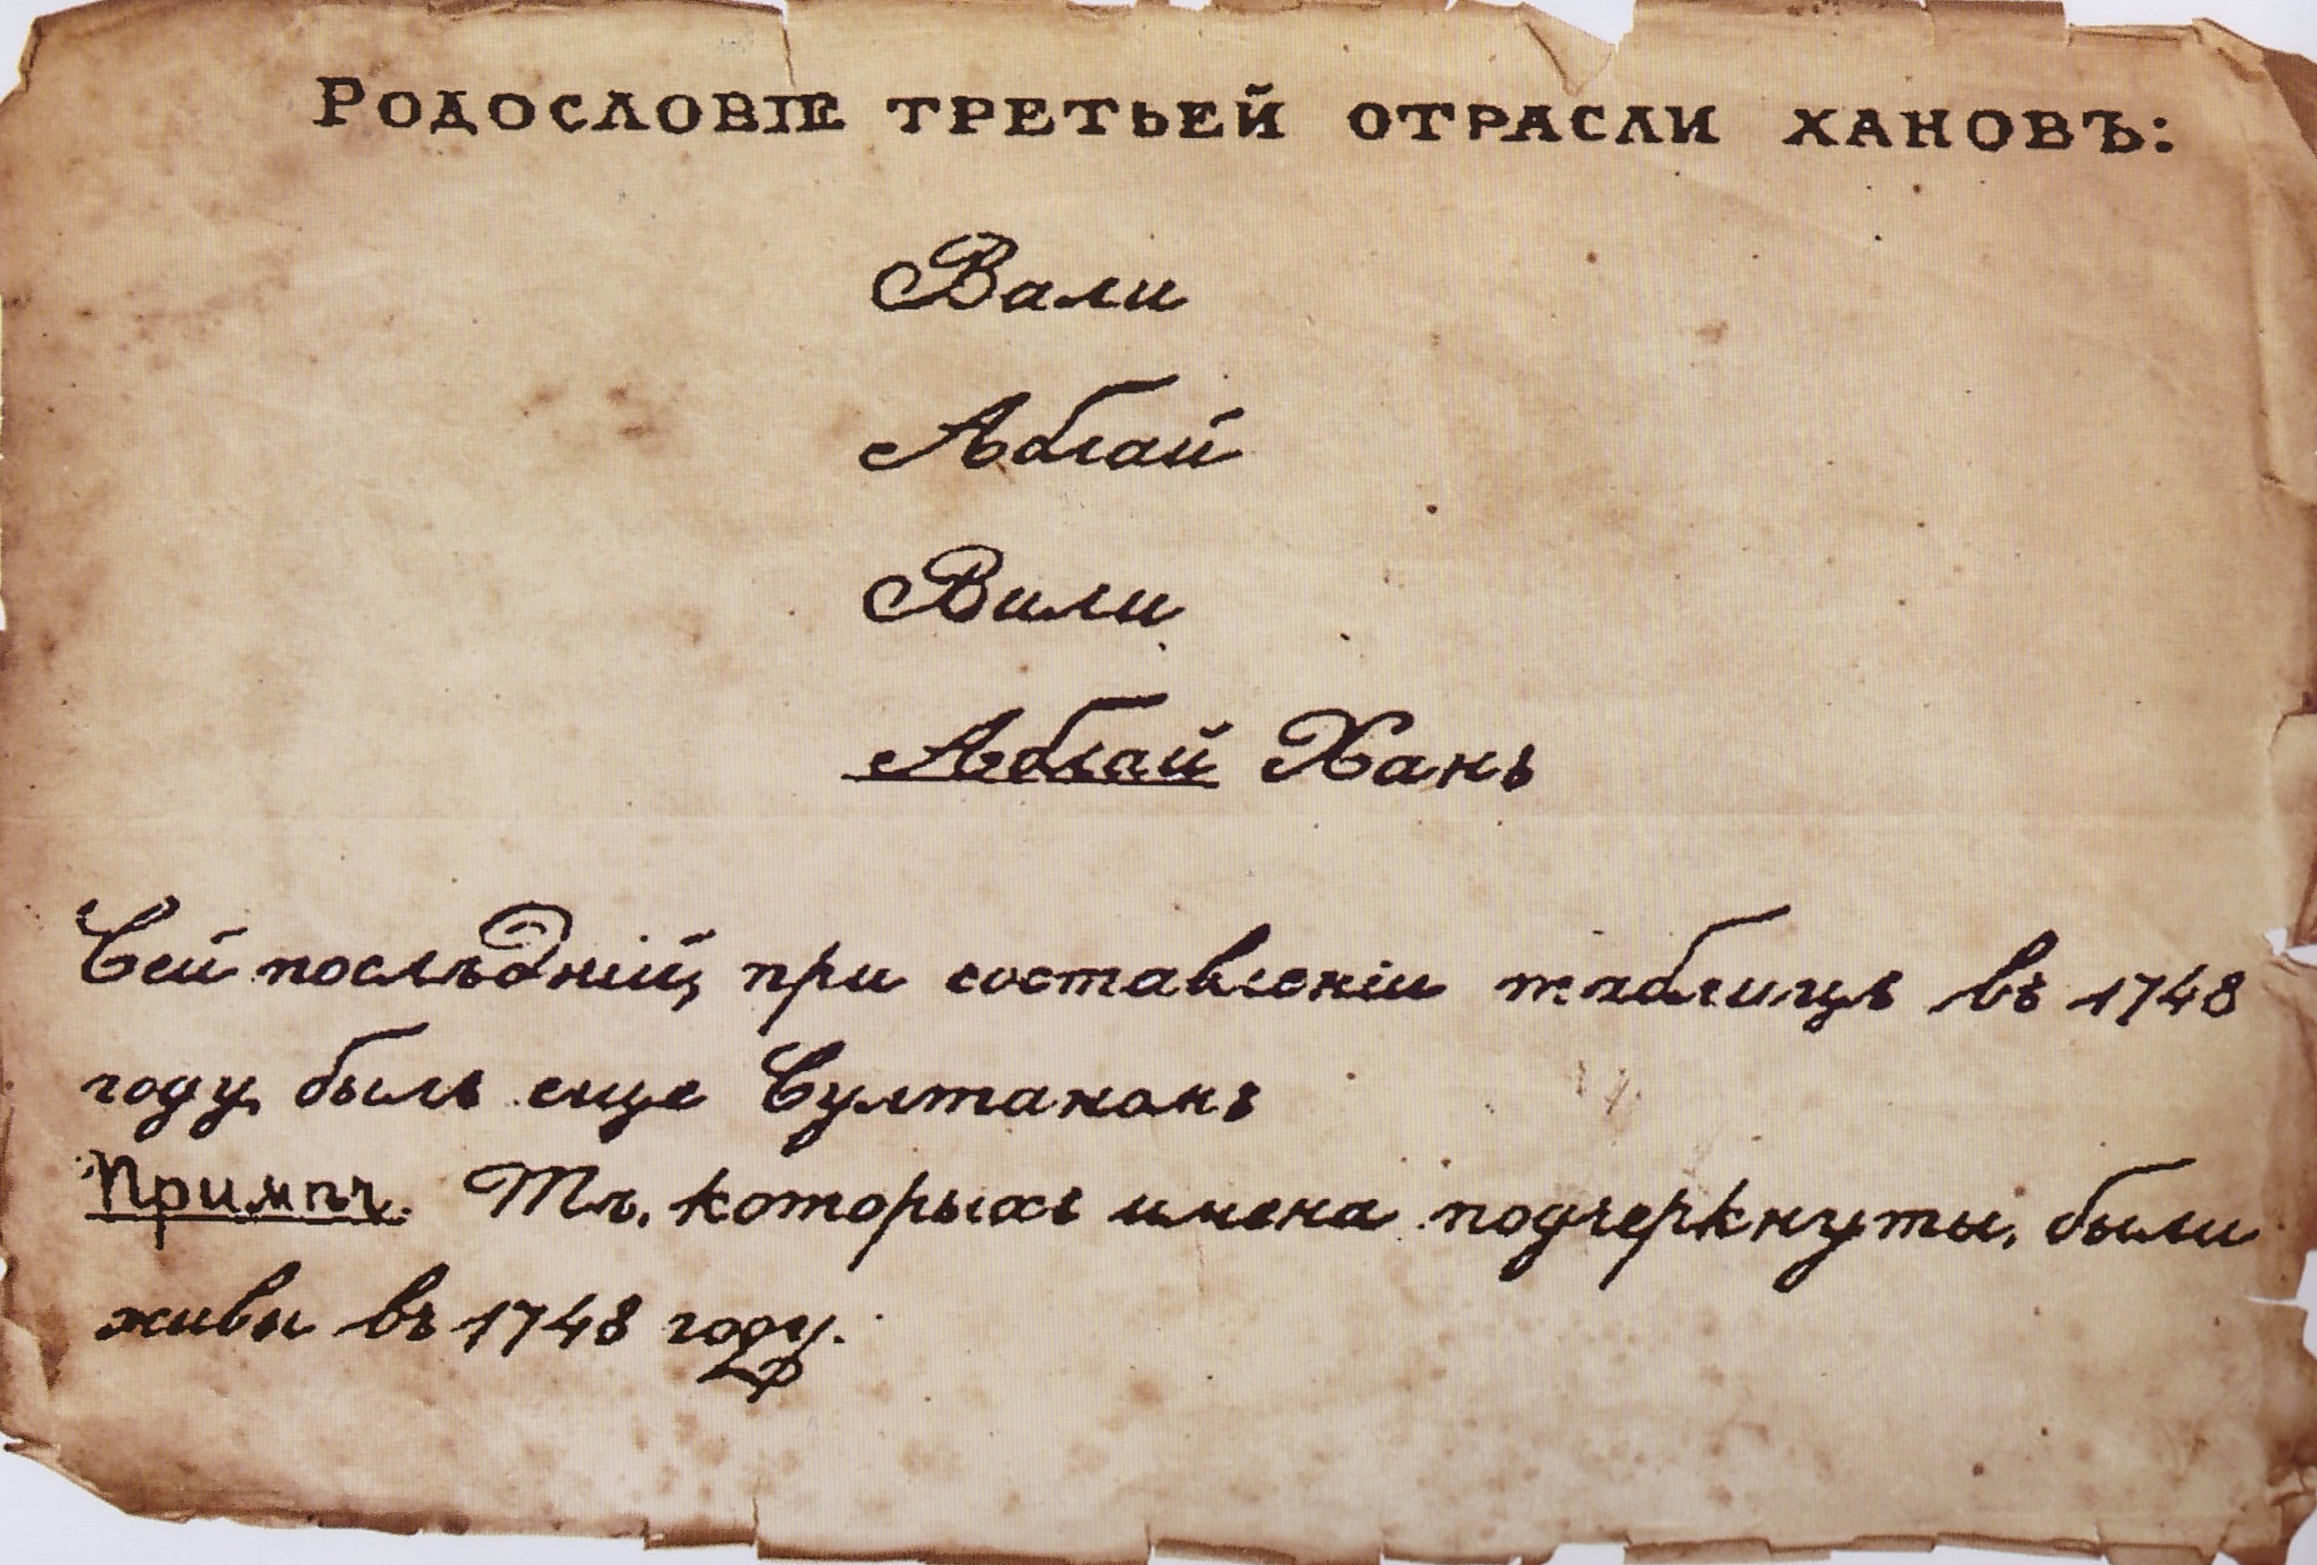 Родословіе третьей отрасли хановъ:
Вали
Аблай
Вали
Аблай Ханъ
Сей послѣдній, при составленіи таблицъ въ 1748
году, былъ еще Султаномъ
Примѣч. Тѣ, которыхъ имена подчеркнуты, были
живы въ 1748 году.